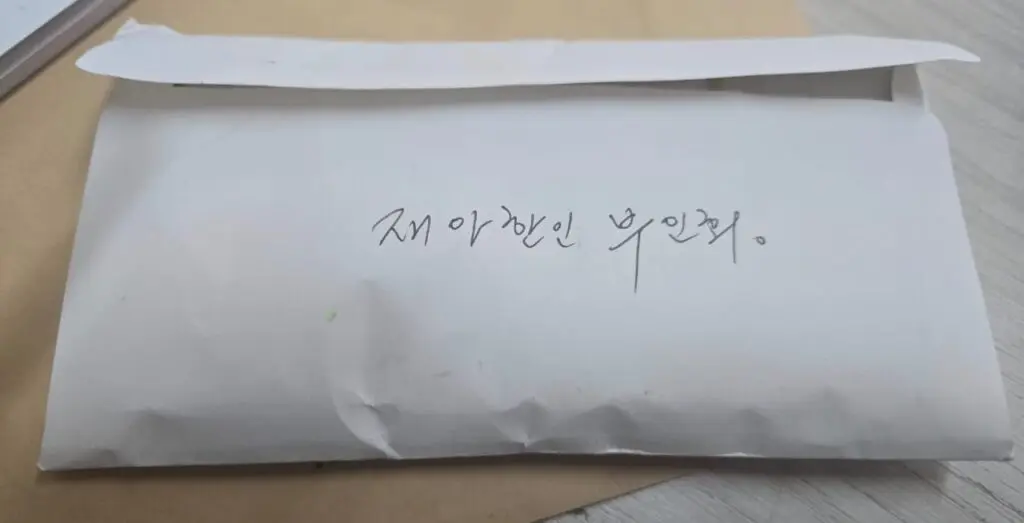 재아한인 부인회.